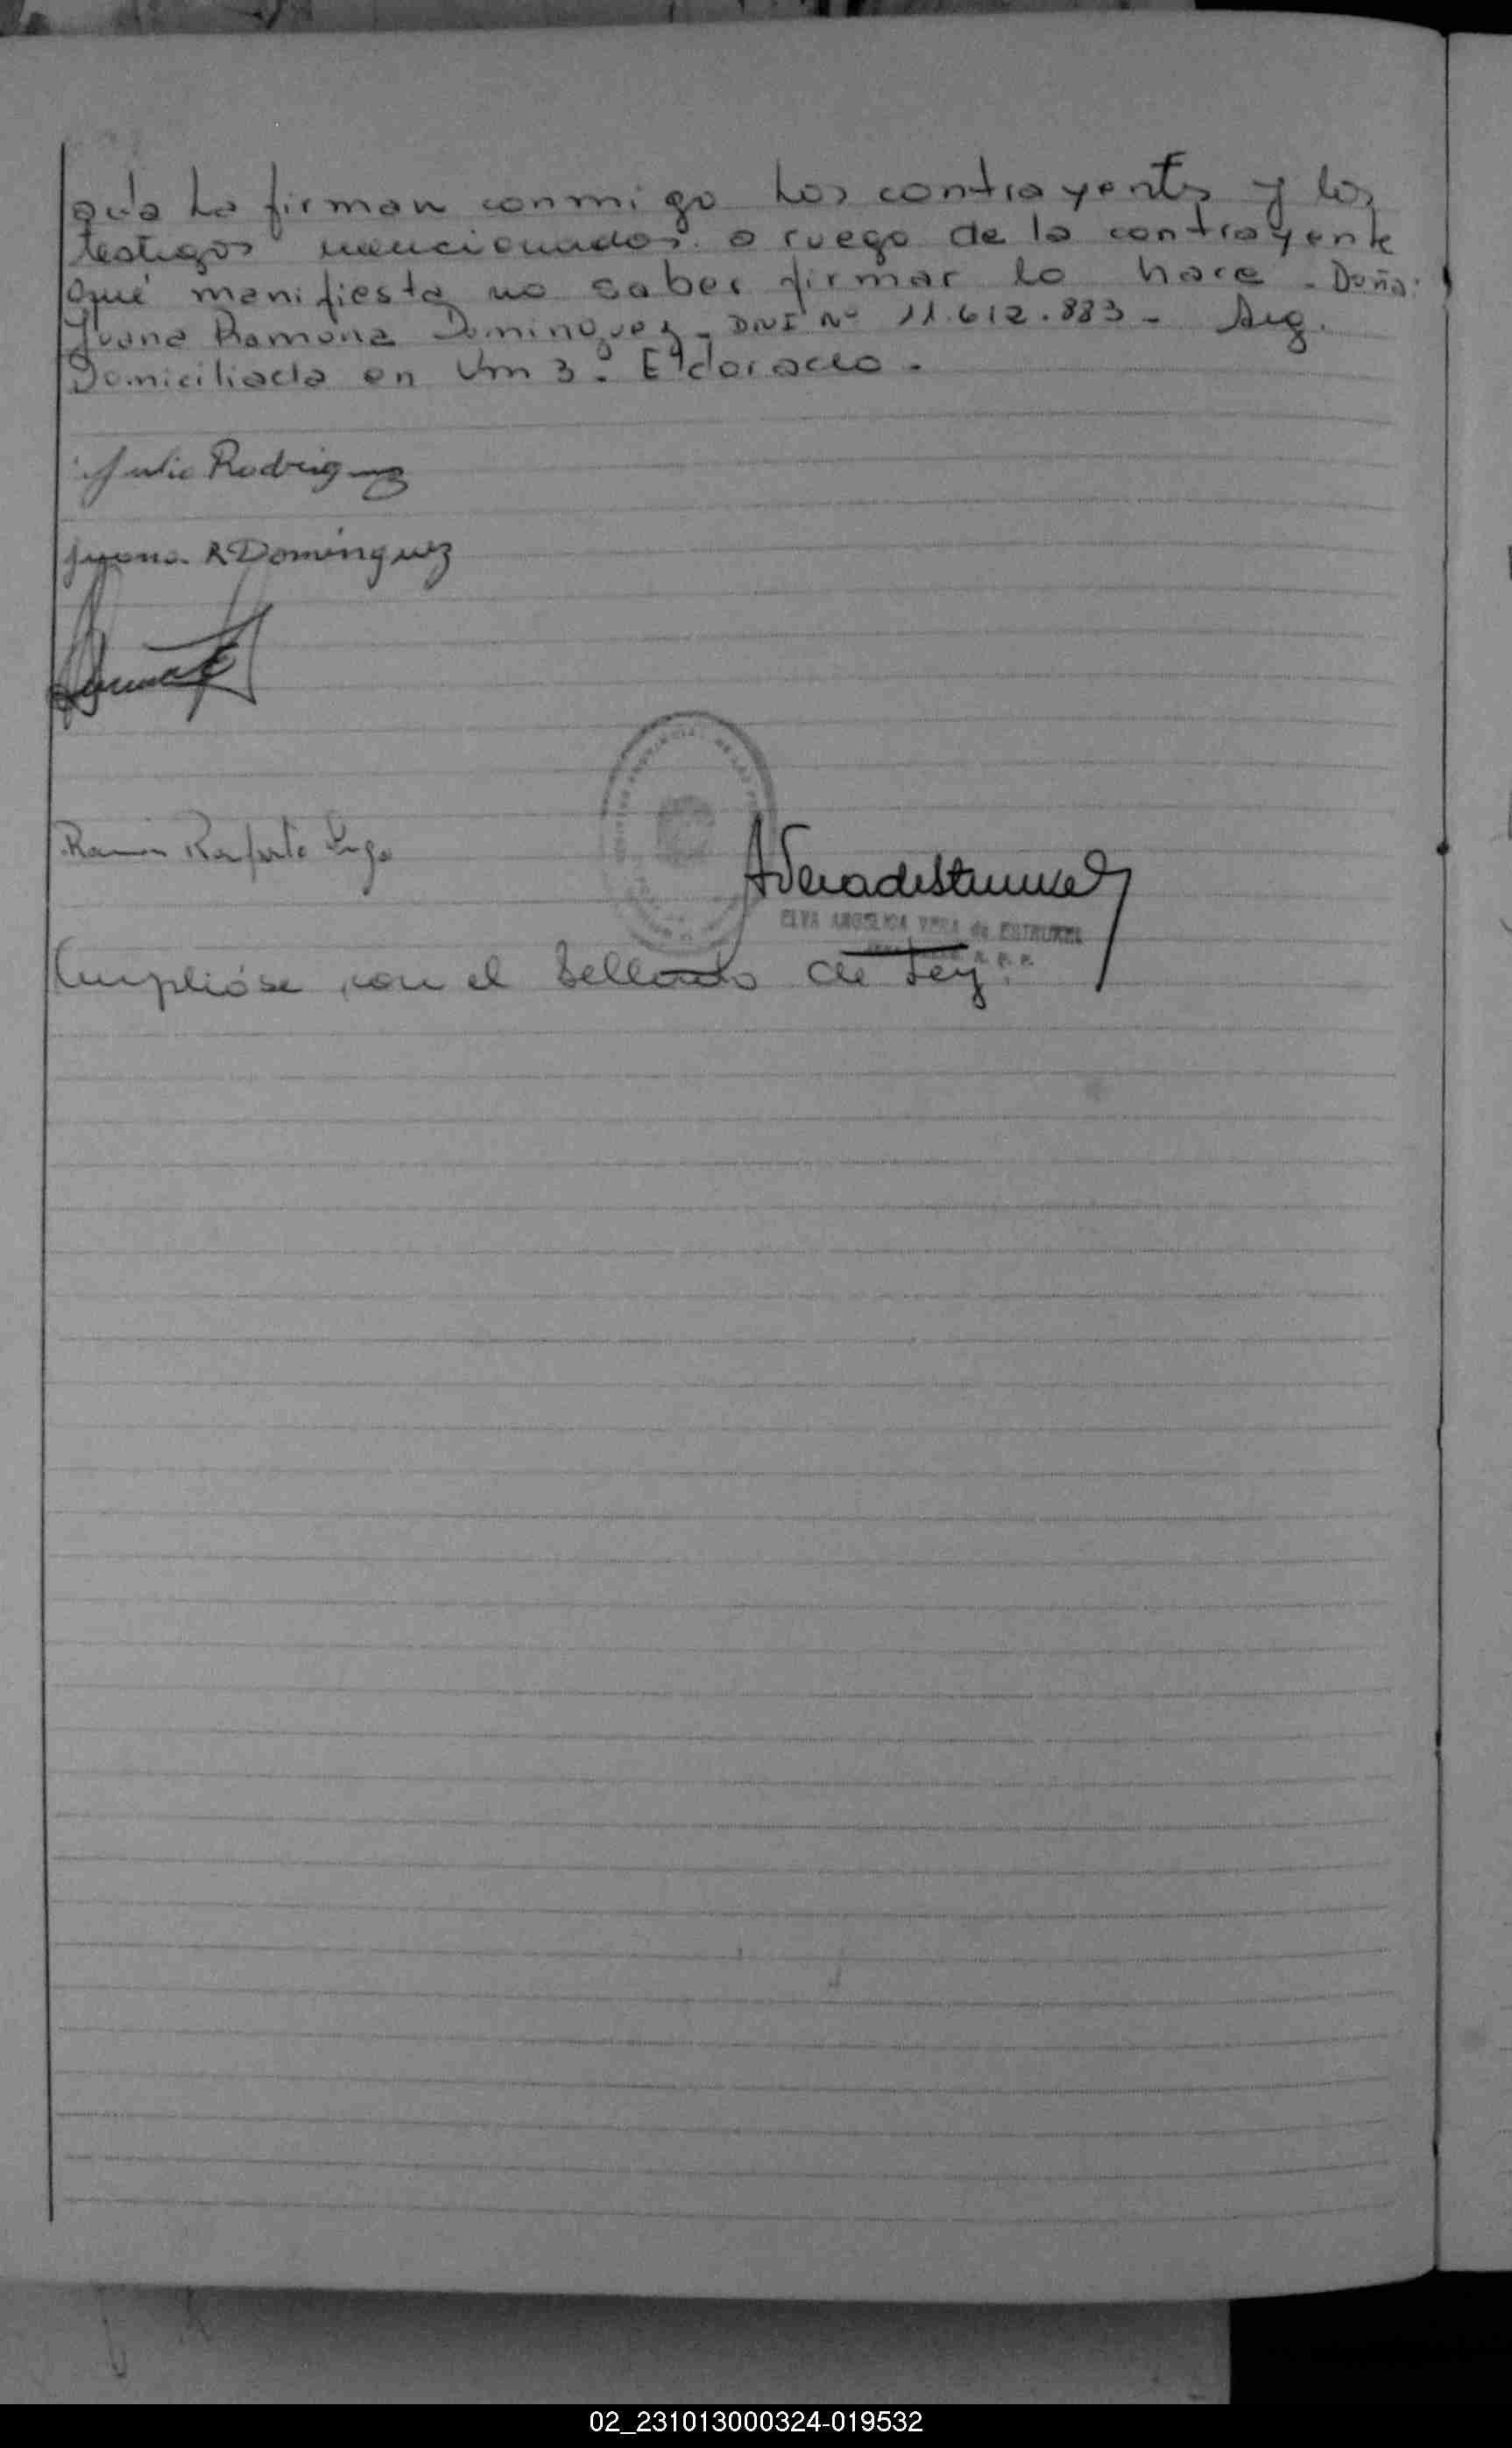 acta La firman conmigo Los contrayentes y los
testigos mencionados. a ruego de la contrayente
que manifiesta no saber firmar lo hace - Doña:
Juana Ramona Dominguez - DNI Nº 11.612.883 - Arg.
Domiciliada en Km 3. Eldorado.
Julio Rodriguez
Juana R Dominguez
Ramon
AVeradeStrumel
ELVA ANGELICA VERA de ESTRUMEL
Cumplióse con el Sellado de Ley.
02_231013000324-019532